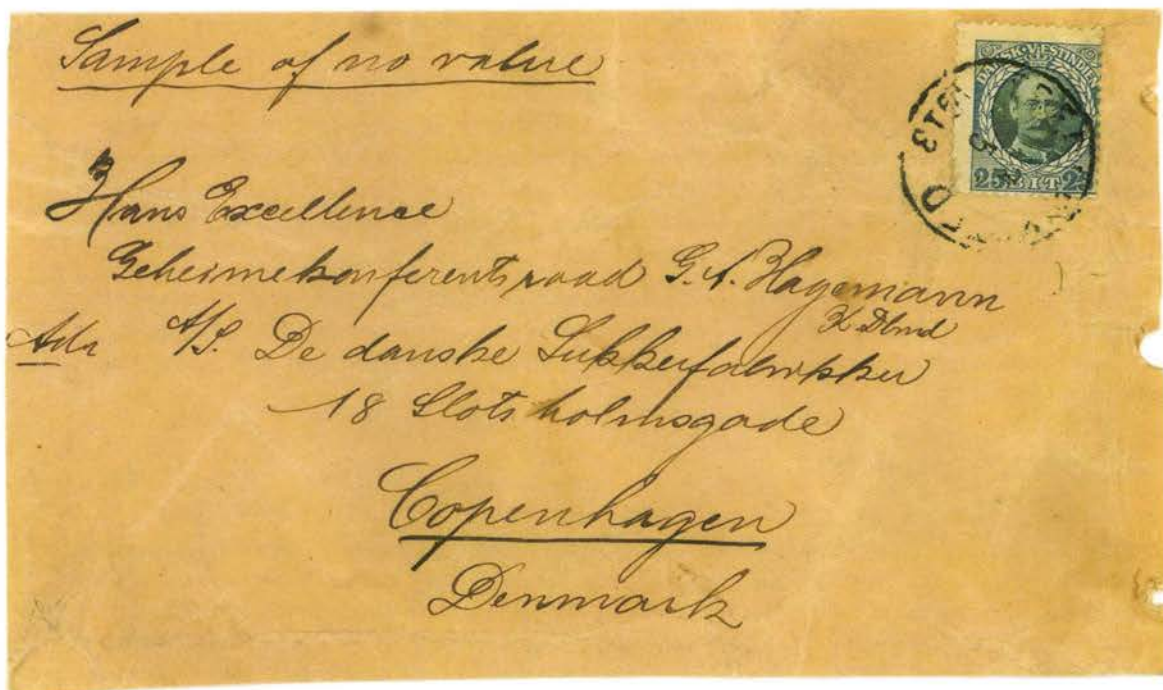 Sample of no value
DANSK-VESTINDIEN
25 BIT 2
Hans Excellence
Geheimekonferentsraad G. A. Hagemann
K Dbmd
Adr A/S. De danske Sukkerfabrikker
18 Slotsholmsgade
Copenhagen
Denmark